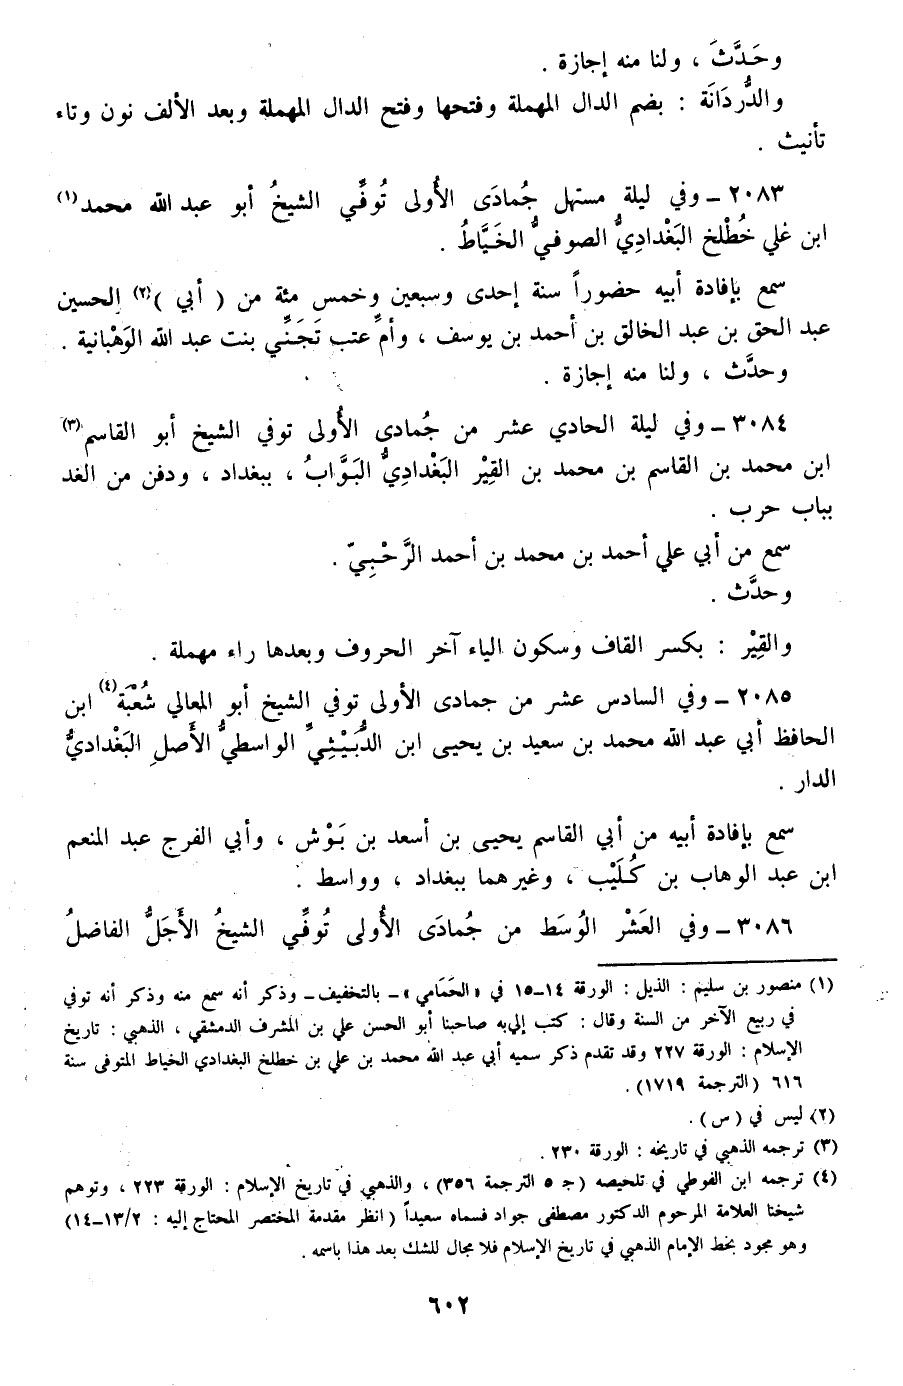 وحَدَّثَ ، ولنا منه إجازة .
والدُّردَانَة : بضم الدال المهملة وفتحها وفتح الدال المهملة وبعد الألف نون وتاء
تأنيث .
٢٠٨٣ ــ وفي ليلة مستهل جُمادَى الأُولى تُوفِّي الشيخُ أبو عبد الله محمد(١)
ابن علي خُطْلخ البَغْداديُّ الصوفيُّ الخَيَّاطُ .
سمع بإفادة أبيه حضوراً سنة إحدى وسبعين وخمس مئة من ( أبي )(٢) الحسين
عبد الحق بن عبد الخالق بن أحمد بن يوسف ، وأم عتب تَجَنِّي بنت عبد الله الوَهْبانية .
وحدَّث ، ولنا منه إجازة .
٣٠٨٤ ــ وفي ليلة الحادي عشر من جُمادى الأُولى توفي الشيخ أبو القاسم(٣)
ابن محمد بن القاسم بن محمد بن القِيْر البَغْدادِيُّ البَوَّابُ ، ببغداد ، ودفن من الغد
بباب حرب .
سمع من أبي علي أحمد بن محمد بن أحمد الرَّحْبِيّ .
وحدَّث .
والقِيْر : بكسر القاف وسكون الياء آخر الحروف وبعدها راء مهملة .
٢٠٨٥ ــ وفي السادس عشر من جمادى الأولى توفي الشيخ أبو المعالي شُعْبَة(٤) ابن
الحافظ أبي عبد الله محمد بن سعيد بن يحيى ابن الدُّبَيْثِيِّ الواسطيُّ الأَصلِ البَغْداديُّ
الدار .
سمع بإفادة أبيه من أبي القاسم يحيى بن أسعد بن بَوْش ، وأبي الفرج عبد المنعم
ابن عبد الوهاب بن كُلَيْب ، وغيرهما ببغداد ، وواسط .
٣٠٨٦ ــ وفي العَشْر الوُسَط من جُمادَى الأُولى تُوفِّي الشيخُ الأَجَلُّ الفاضلُ
(١) منصور بن سليم : الذيل : الورقة ١٤ــ١٥ في «الحَمَامي» ــ بالتخفيف ــ وذكر أنه سمع منه وذكر أنه توفي
في ربيع الآخر من السنة وقال : كتب إلي به صاحبنا أبو الحسن علي بن المشرف الدمشقي ، الذهبي : تاريخ
الإسلام : الورقة ٢٢٧ وقد تقدم ذكر سميه أبي عبد الله محمد بن علي بن خطلخ البغدادي الخياط المتوفى سنة
٦١٦ (الترجمة ١٧١٩) .
(٢) ليس في (س) .
(٣) ترجمه الذهبي في تاريخه : الورقة ٢٣٠ .
(٤) ترجمه ابن الفوطي في تلخيصه (جـ ٥ الترجمة ٣٥٦) ، والذهبي في تاريخ الإسلام : الورقة ٢٢٣ ، وتوهم
شيخنا العلامة المرحوم الدكتور مصطفى جواد فسماه سعيداً (انظر مقدمة المختصر المحتاج إليه : ١٣/٢ــ١٤)
وهو مجود بخط الإمام الذهبي في تاريخ الإسلام فلا مجال للشك بعد هذا باسمه .
٦٠٢